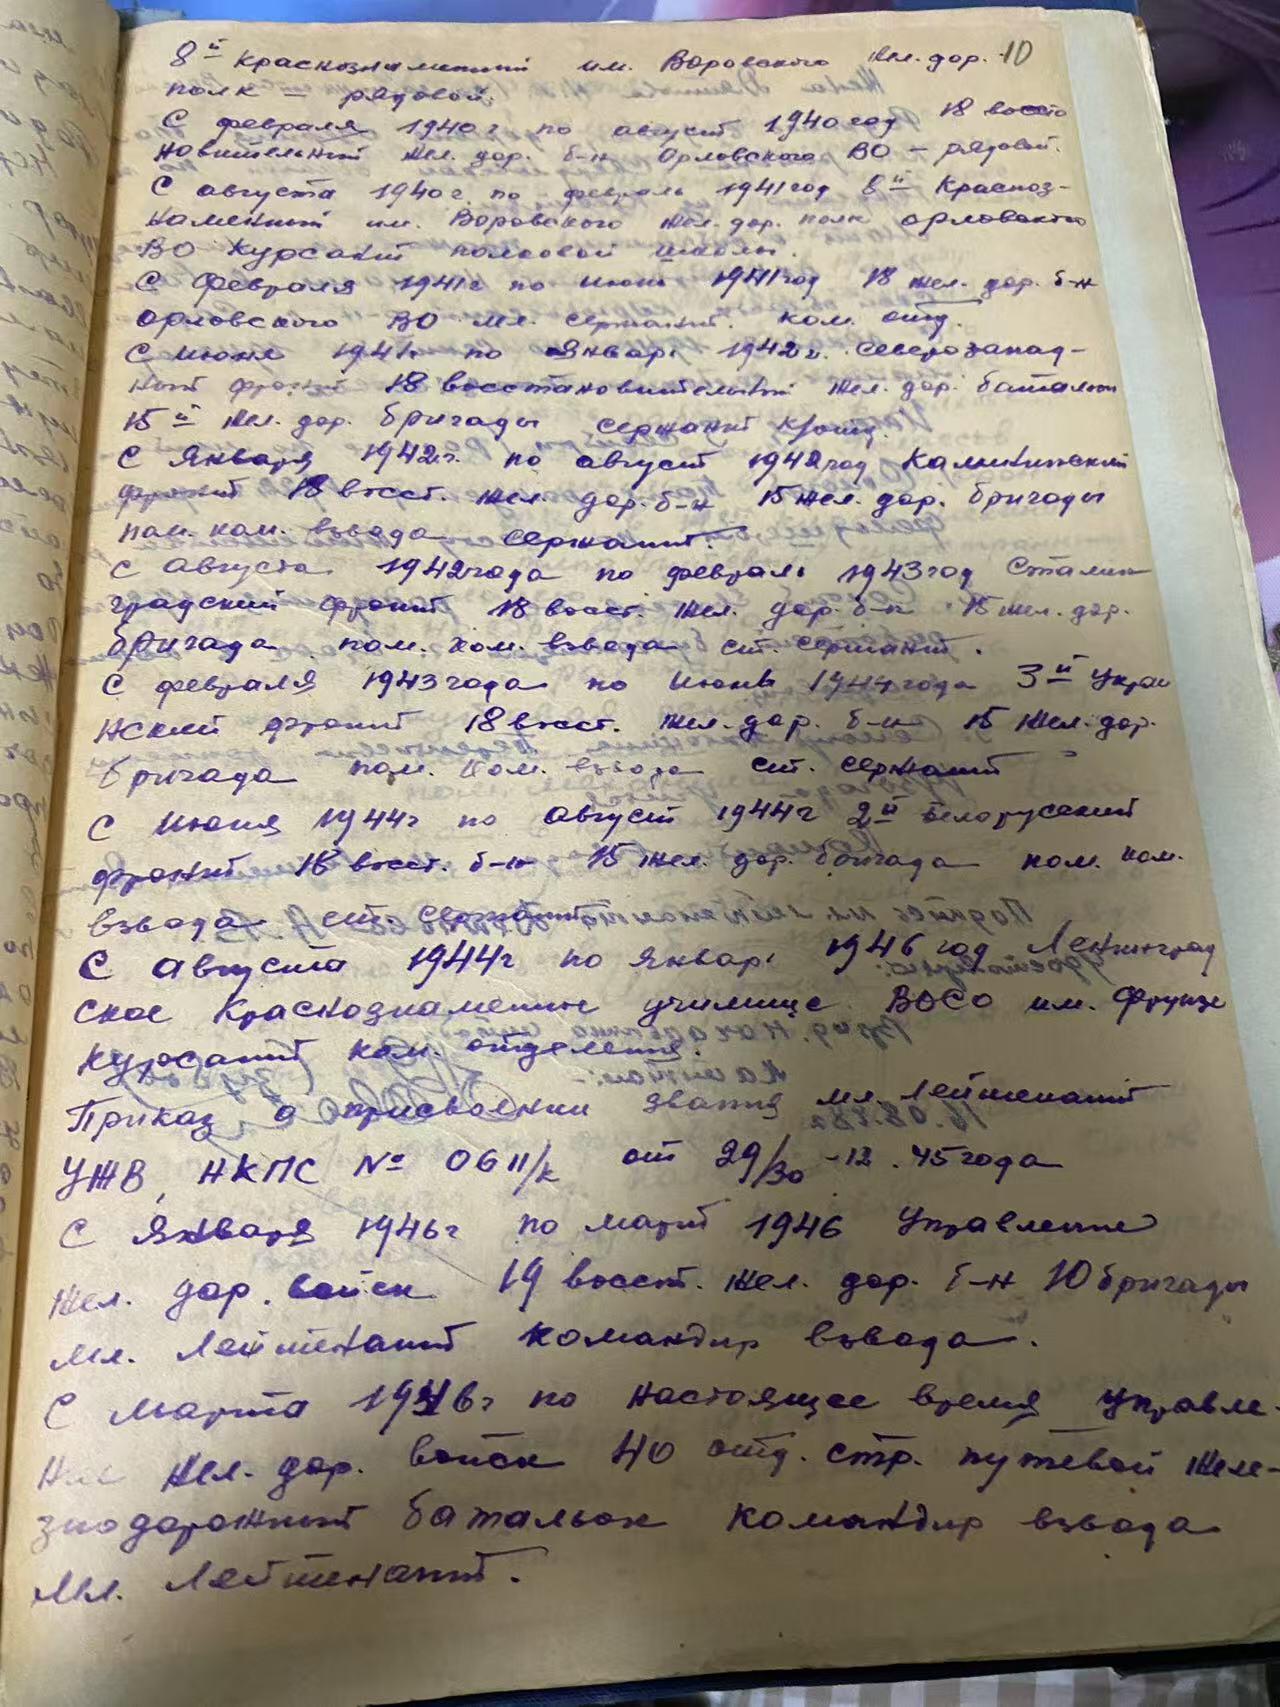 8й Краснознаменный им. Воровского жел. дор. 10
полк — рядовой.
С февраля 1940г по август 1940 год 18 восста
новительный жел. дор. б-н Орловского ВО — рядовой.
С августа 1940г. по февраль 1941 год 8й Красноз-
наменный им. Воровского жел. дор. полк Орловского
ВО Курсант полковой школы.
С февраля 1941г по июнь 1941 год 18 жел. дор. б-н
Орловского ВО мл. сержант. ком. отд.
С июня 1941г. по январь 1942г. северозапад-
ный фронт 18 восстановительный жел. дор. батальон
15й жел. дор. бригады сержант к/отд.
С января 1942г. по август 1942 год Калининский
фронт 18 восст. жел. дор. б-н 15 жел. дор. бригады
пом. ком. взвода сержант.
С августа 1942 года по февраль 1943 год Сталин
градский фронт 18 восст. жел. дор. б-н 15 жел. дор.
бригада пом. ком. взвода ст. сержант.
С февраля 1943 года по июнь 1944 года 3й Украи
нский фронт 18 восст. жел. дор. б-н 15 жел. дор.
бригада пом. ком. взвода ст. сержант
С июня 1944г по август 1944г 2й белорусский
фронт 18 восст. б-н 15 жел. дор. бригада пом. ком.
взвода ст. сержант
С августа 1944г по январь 1946 год Ленинград
ское Краснознаменное училище ВОСО им. Фрунзе
курсант ком. отделения.
Приказ о присвоении звания мл. лейтенант
УЖВ, НКПС № 0611/к от 29/30 -12. 45 года
С января 1946г по март 1946 Управление
жел. дор. войск 19 восст. жел. дор. б-н 10 бригады
мл. лейтенант командир взвода.
С марта 1946г по настоящее время Управле-
ние жел. дор. войск 40 отд. стр. путевой желе-
знодорожный батальон командир взвода
мл. лейтенант.